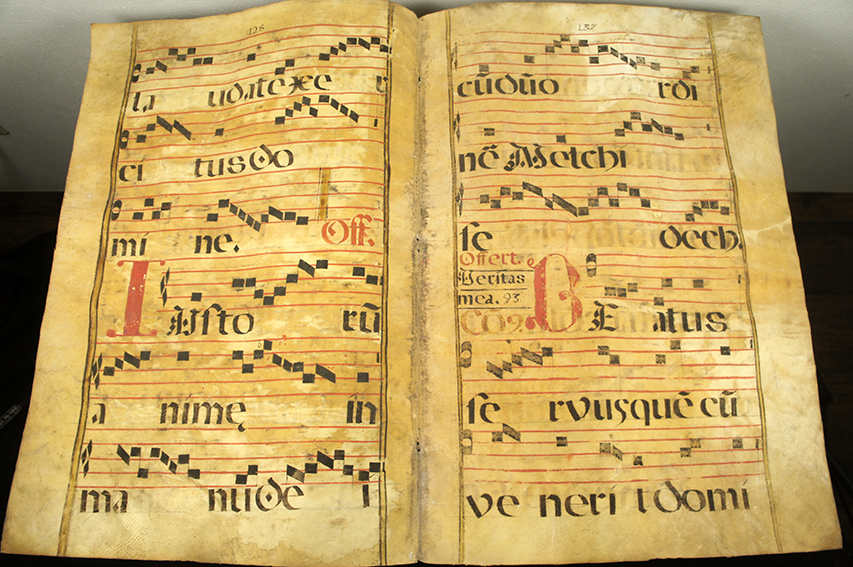 la udatexe r
ci tusdo
mi ne. Off.
IUsto rū
a nimę in
ma nudē i
cūdūo rdi
nē Melchi
se dech.
Offert.
Veritas
mea. 93.
CO9. BEatus
se rvusquē cū
ve neri t domi